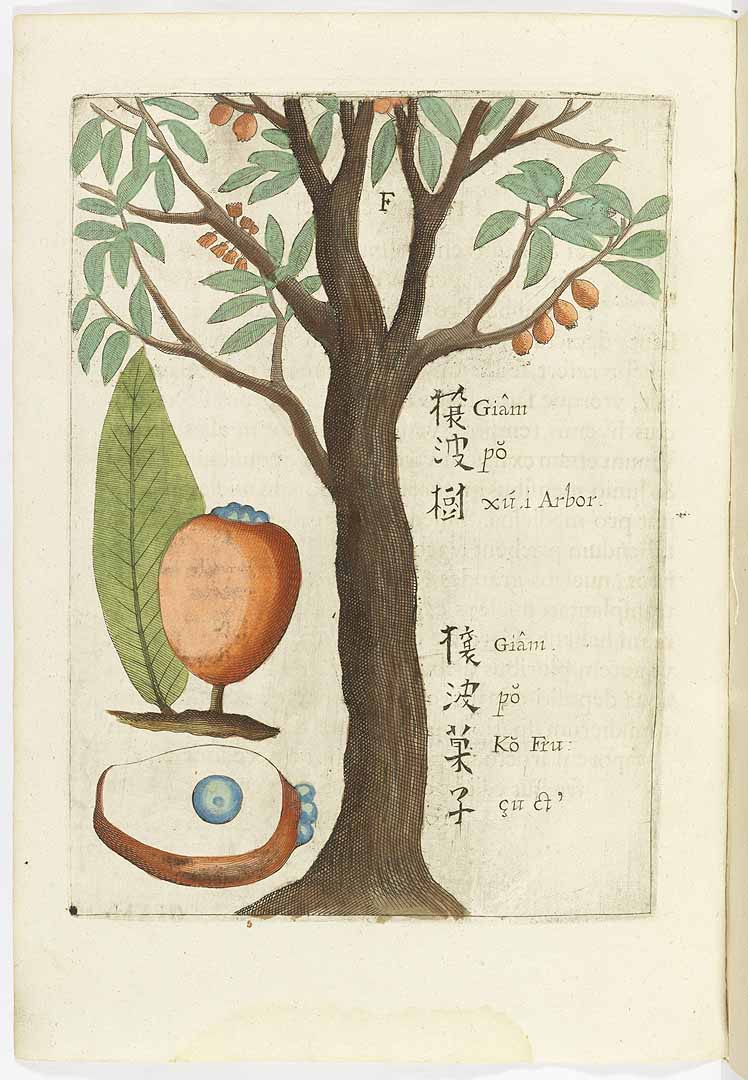 F
Giâm
波 pŏ
樹 xú.i Arbor.
Giâm.
波 pŏ
菓 Kŏ Fru:
子 çu ct’